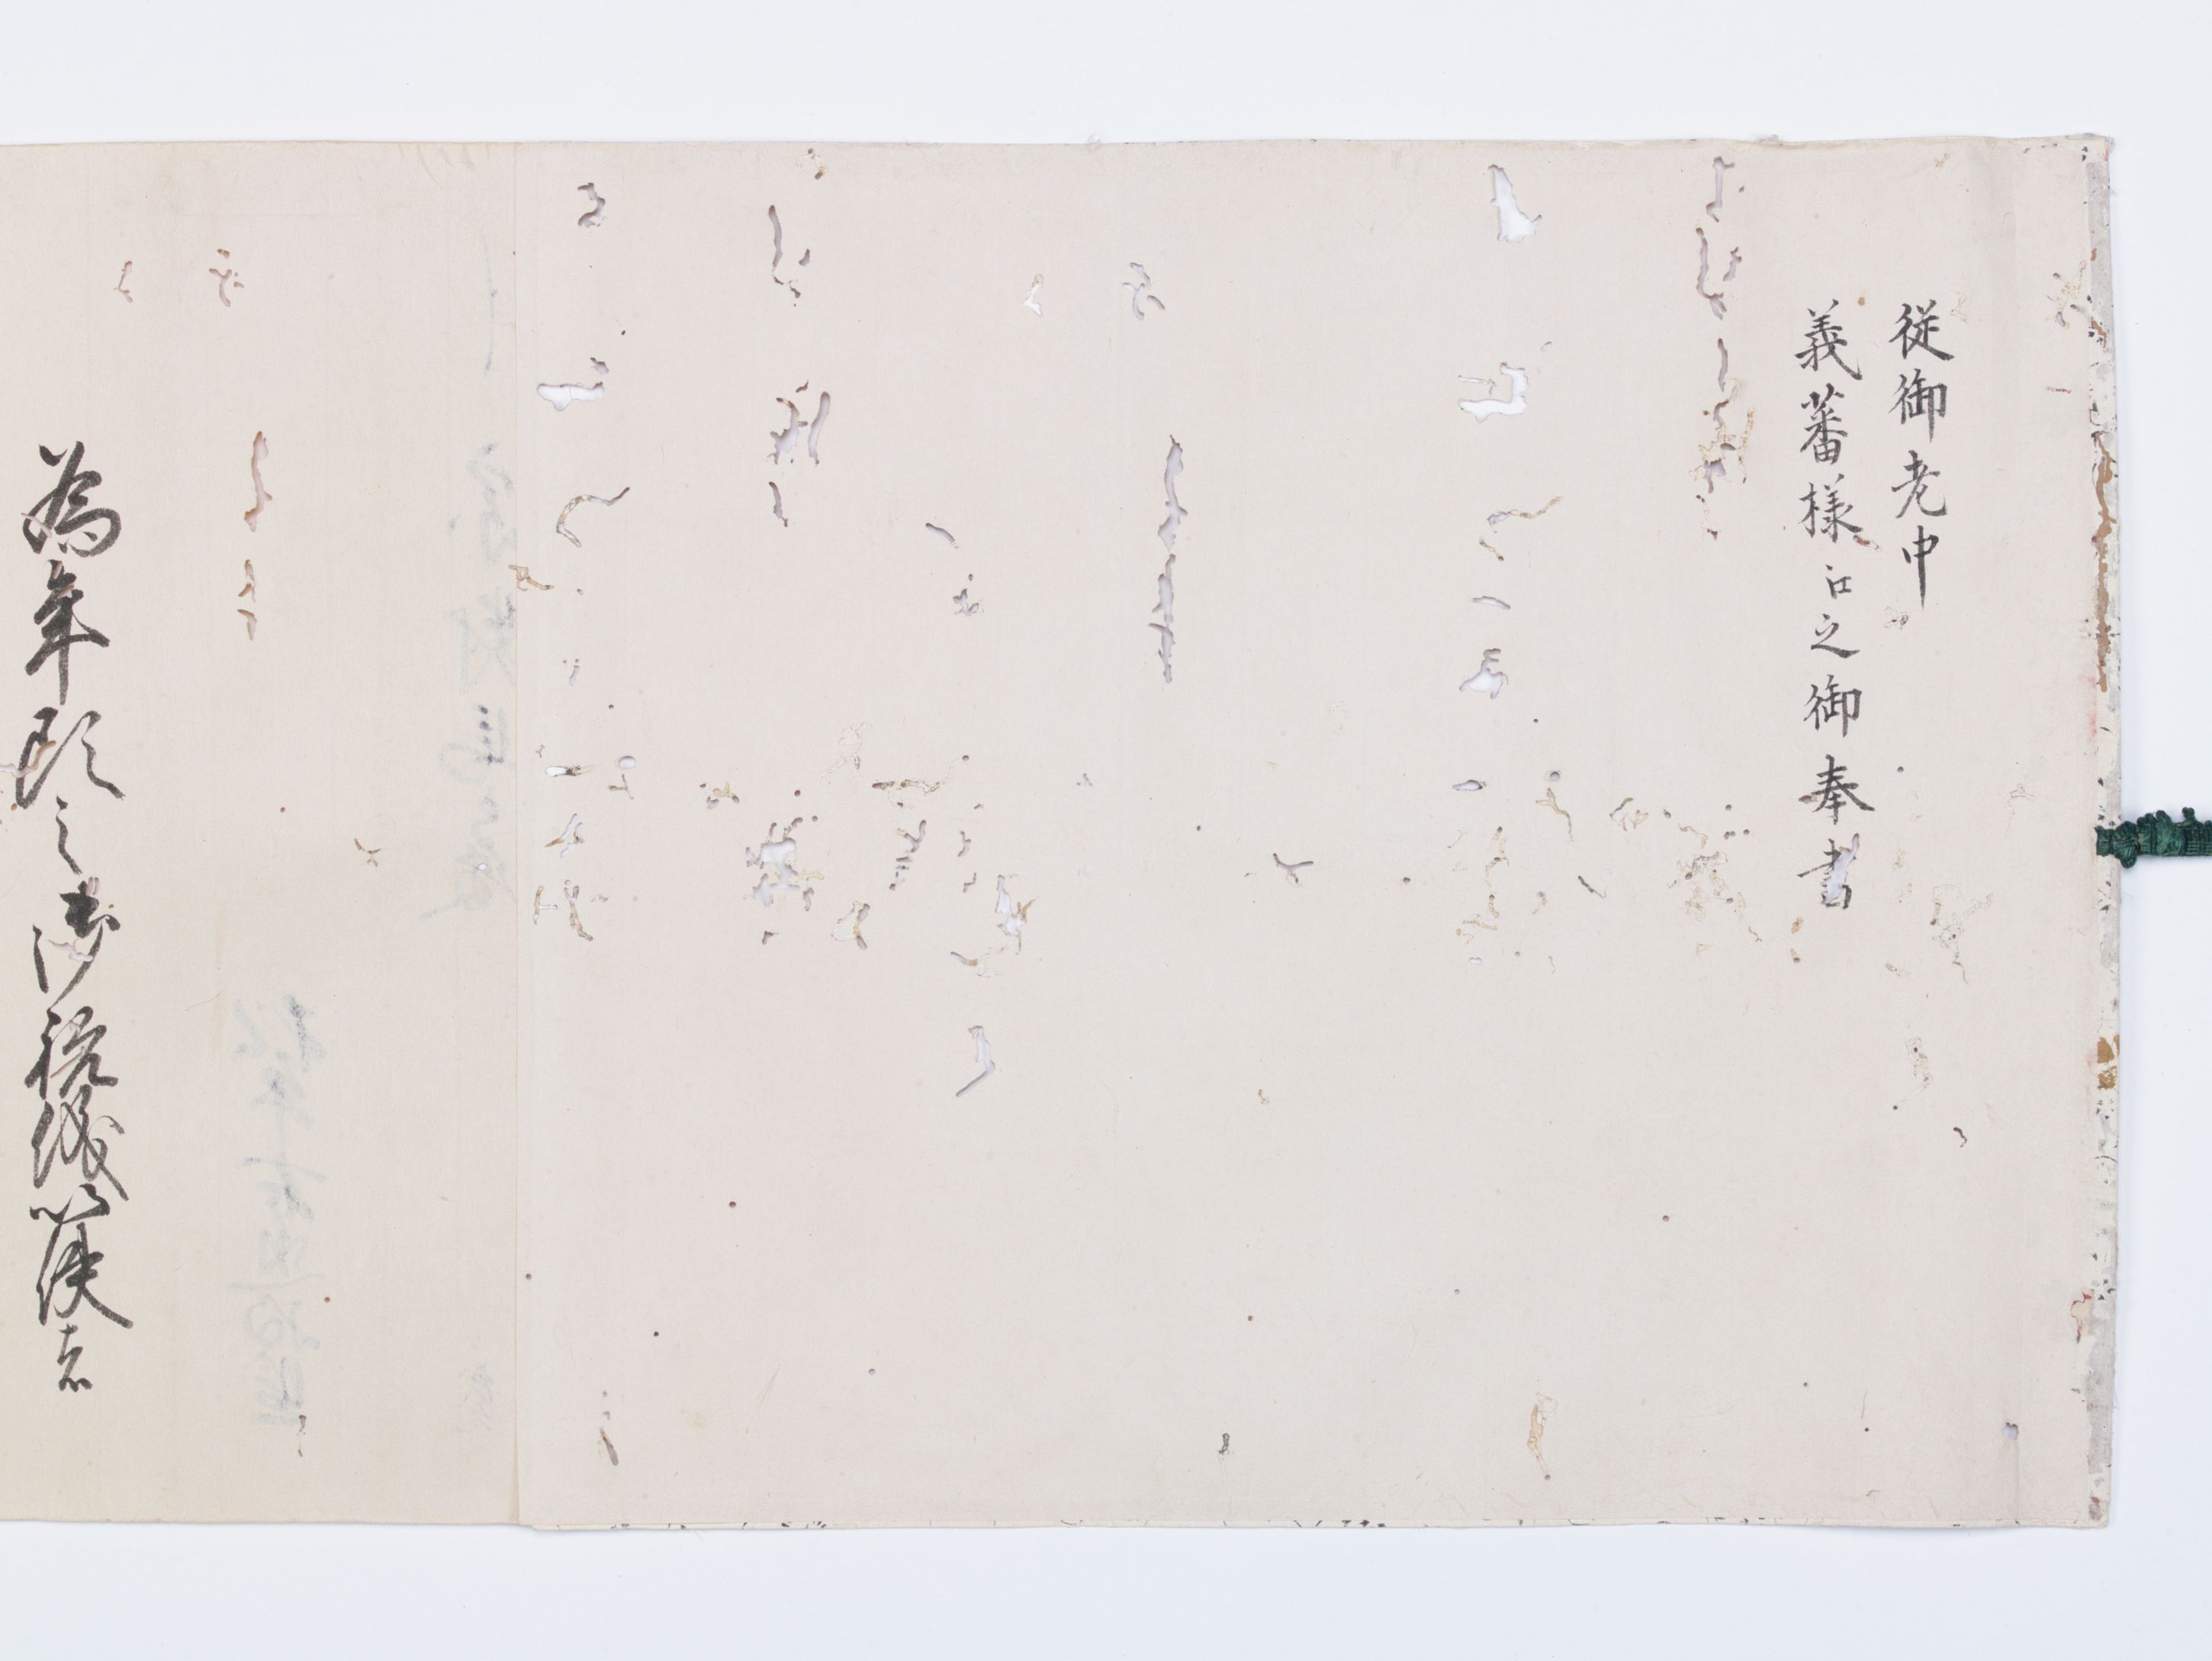 従御老中
義蕃様江之御奉書
為年頭之御祝儀以使者